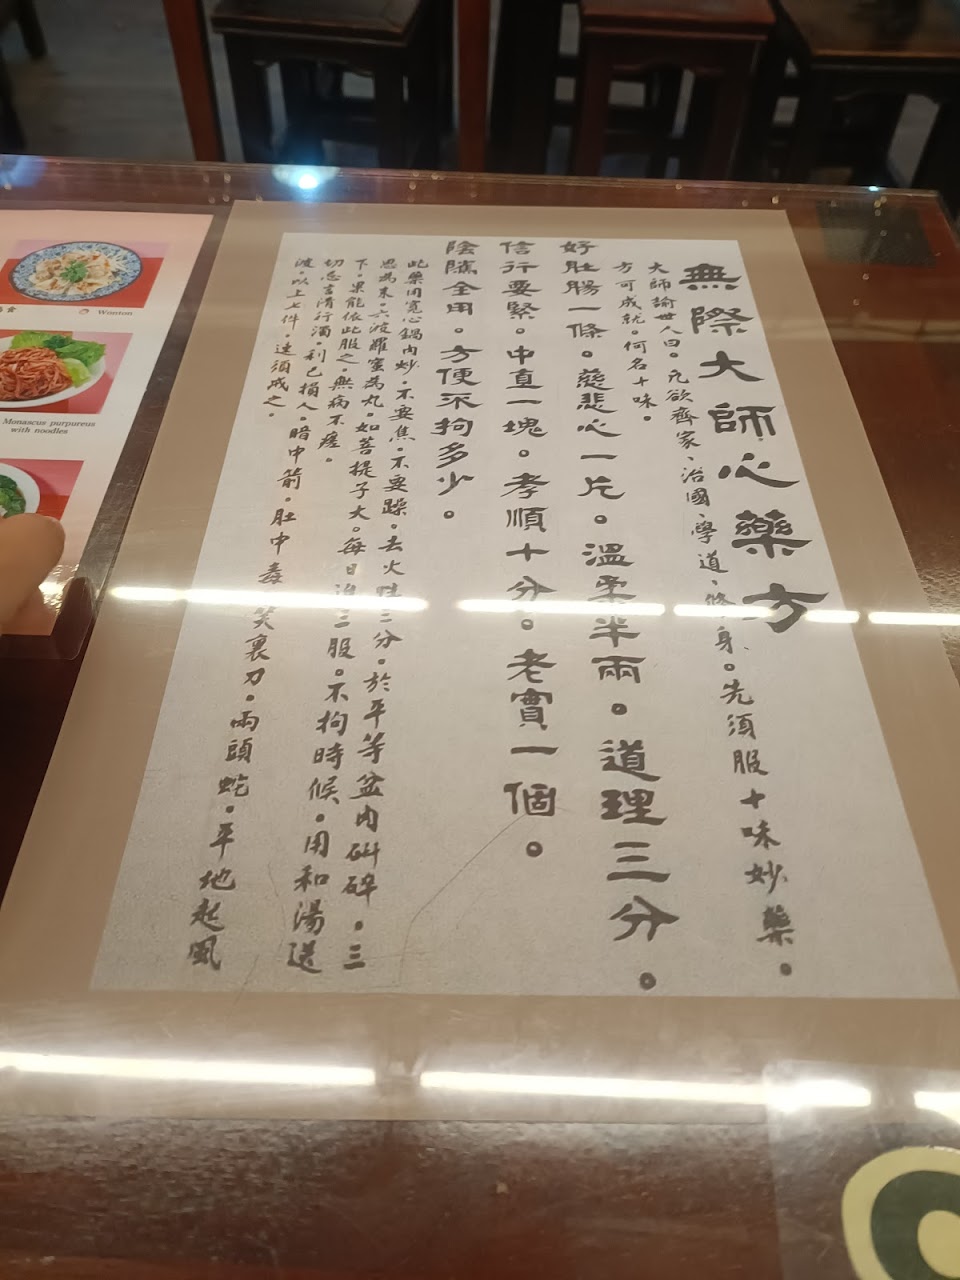 無際大師心藥方
大師諭世人曰。凡欲齊家、治國、學道、修身。先須服十味妙藥。
方可成就。何名十味。
好肚腸一條。慈悲心一片。溫柔半兩。道理三分。
信行要緊。中直一塊。孝順十分。老實一個。
陰隲全用。方便不拘多少。
此藥用寬心鍋內炒。不要焦。不要躁。去火性三分。於平等盆內研碎。三
思為末。六波羅蜜為丸。如菩提子大。每日進三服。不拘時候。用和湯送
下。果能依此服之。無病不瘥。
切忌言清行濁。利己損人。暗中箭。肚中毒。笑裏刀。兩頭蛇。平地起風
波。以上七件。速須戒之。
Wonton
Monascus purpureus
with noodles